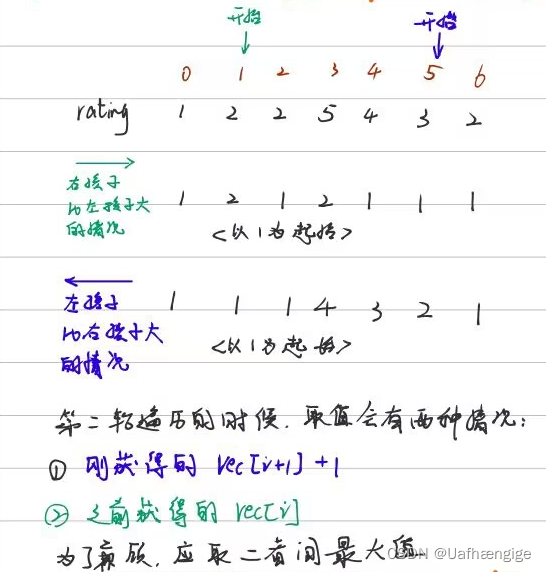 开始 开始
0 1 2 3 4 5 6
rating 1 2 2 5 4 3 2
右孩子
比左孩子大
的情况
1 2 1 2 1 1 1
<以1为起始>
左孩子
比右孩子大
的情况
1 1 1 4 3 2 1
<以1为起始>
第二轮遍历的时候，取值会有两种情况：
① 刚获得的 vec[i+1]+1
② 之前获得的 vec[i]
为了兼顾，应取二者间最大值
CSDN @Uafhængige